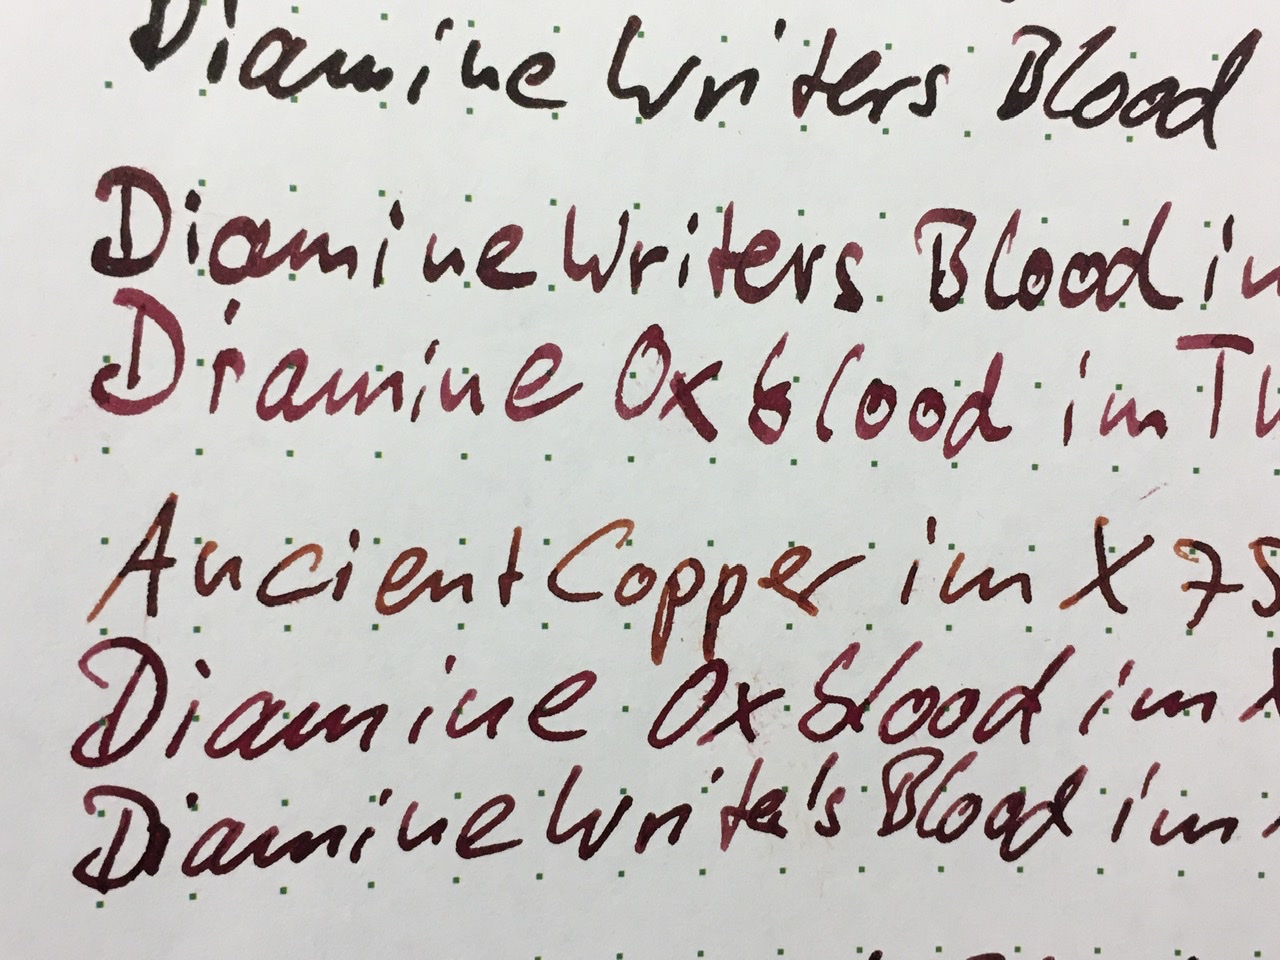 Diamine Writers Blood
Diamine Writers Blood im
Diamine Oxblood im
Ancient Copper im X 75
Diamine Oxblood im
Diamine Writer's Blood im